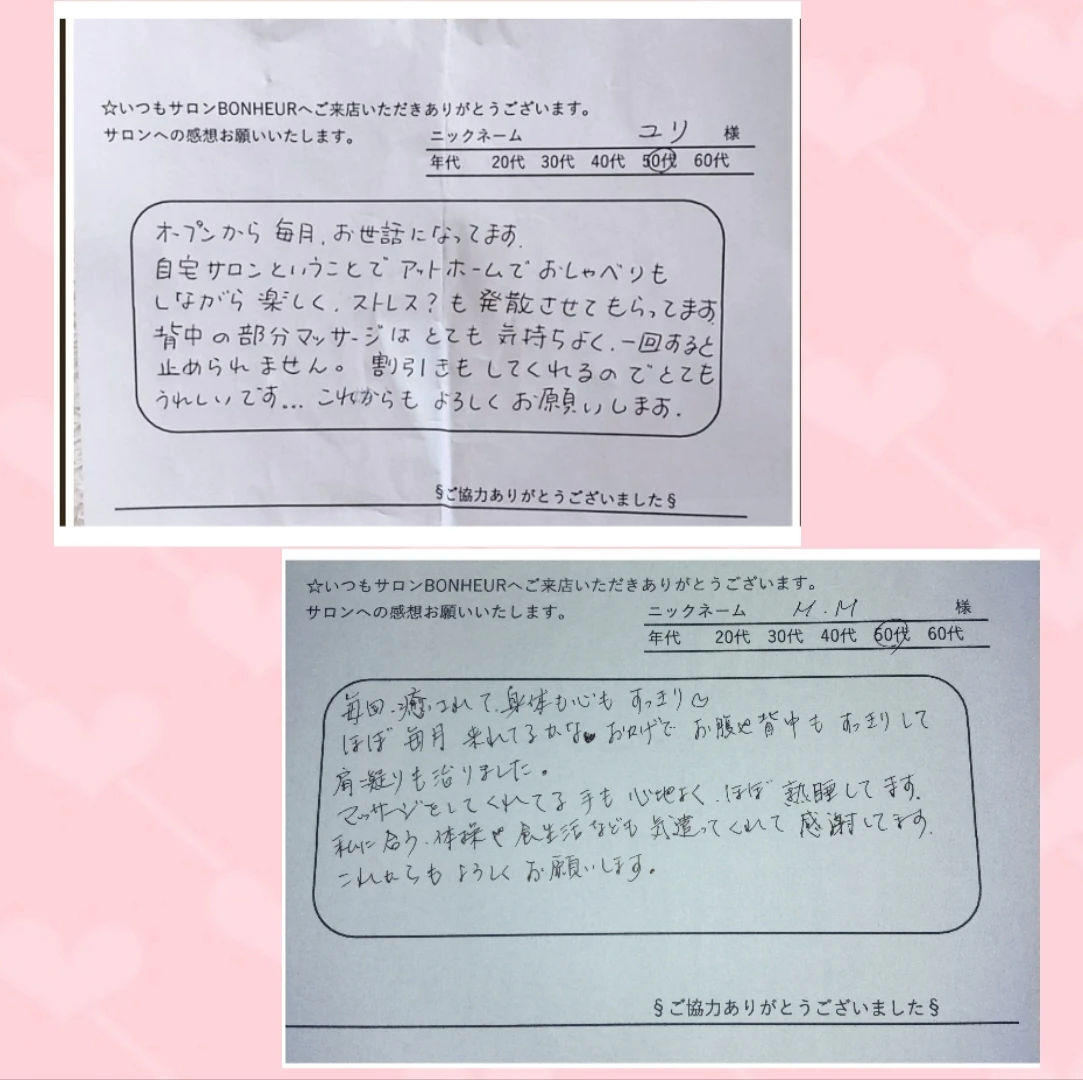 ☆いつもサロンBONHEURへご来店いただきありがとうございます。
サロンへの感想お願いいたします。
ニックネーム ユリ 様
年代 20代 30代 40代 50代 60代
オープンから 毎月、お世話になってます。
自宅サロンということで アットホームで おしゃべりも
しながら 楽しく、ストレス?も 発散させてもらってます。
背中の部分マッサージは とても 気持ちよく、一回すると
止められません。 割引きもしてくれるので とても
うれしいです... これからも よろしく お願いします。
§ご協力ありがとうございました§
☆いつもサロンBONHEURへご来店いただきありがとうございます。
サロンへの感想お願いいたします。
ニックネーム M.M 様
年代 20代 30代 40代 50代 60代
毎回、癒されて、身体も心も すっきり♡
ほぼ 毎月 来れてるかな♥ おかげで お腹や背中も すっきりして
肩凝りも治りました。
マッサージをしてくれてる 手も 心地よく、ほぼ 熟睡してます。
私に合う、体操や食生活なども 気遣ってくれて 感謝してます。
これからも よろしく お願いします。
§ご協力ありがとうございました§